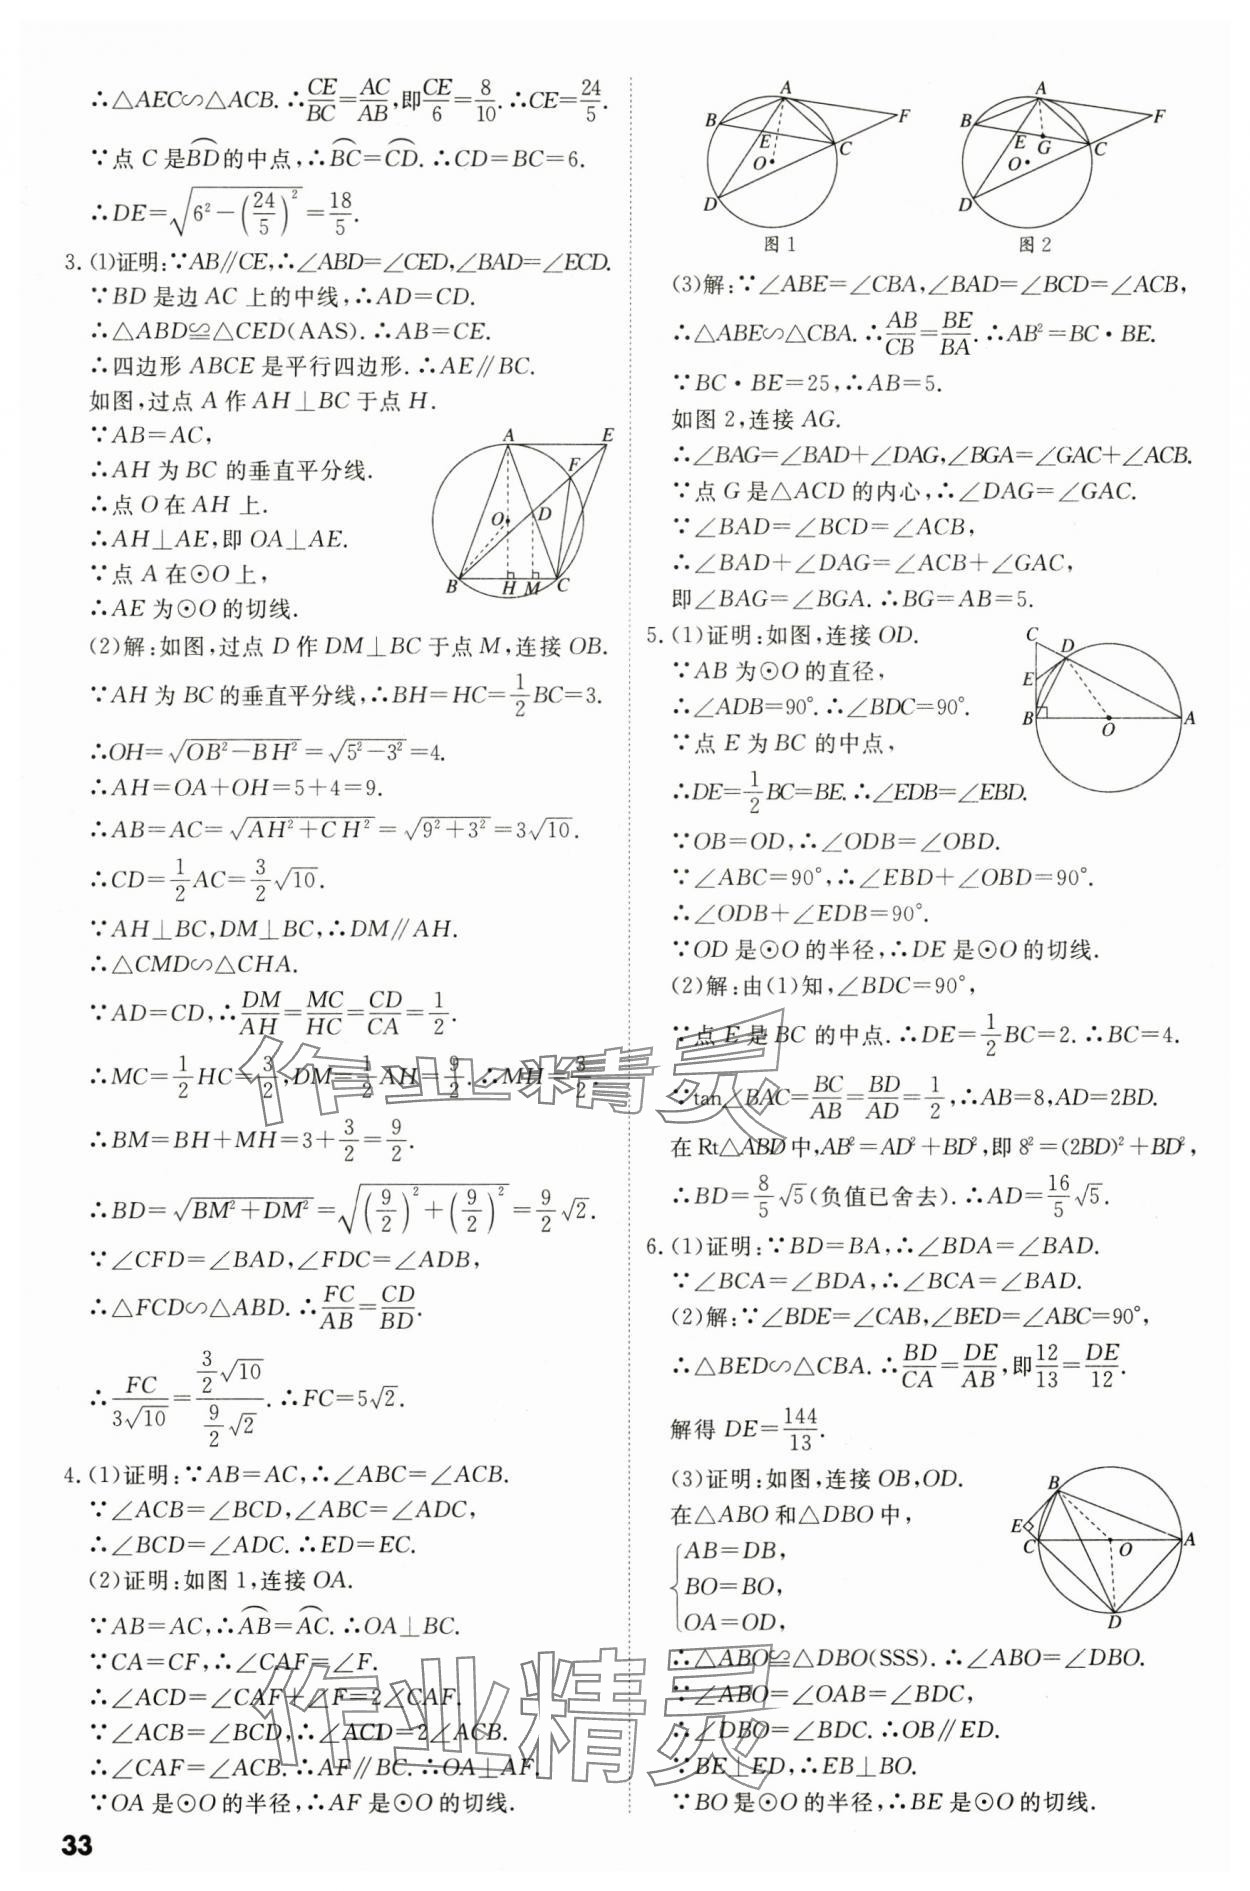 ∴△AEC∽△ACB. ∴CE/BC=AC/AB,即CE/6=8/10. ∴CE=24/5.
∵点 C 是⌒BD的中点,∴⌒BC=⌒CD. ∴CD=BC=6.
∴DE=√(6²-(24/5)²)=18/5.
3. (1)证明:∵AB∥CE,∴∠ABD=∠CED,∠BAD=∠ECD.
∵BD 是边 AC 上的中线,∴AD=CD.
∴△ABD≌△CED(AAS). ∴AB=CE.
∴四边形 ABCE 是平行四边形. ∴AE∥BC.
如图,过点 A 作 AH⊥BC 于点 H.
∵AB=AC,
∴AH 为 BC 的垂直平分线.
∴点 O 在 AH 上.
∴AH⊥AE,即 OA⊥AE.
∵点 A 在⊙O 上,
∴AE 为⊙O 的切线.
A E F O D B H M C
(2)解:如图,过点 D 作 DM⊥BC 于点 M,连接 OB.
∵AH 为 BC 的垂直平分线,∴BH=HC=1/2BC=3.
∴OH=√(OB²-BH²)=√(5²-3²)=4.
∴AH=OA+OH=5+4=9.
∴AB=AC=√(AH²+CH²)=√(9²+3²)=3√10.
∴CD=1/2AC=3/2√10.
∵AH⊥BC,DM⊥BC,∴DM∥AH.
∴△CMD∽△CHA.
∵AD=CD,∴DM/AH=MC/HC=CD/CA=1/2.
∴MC=1/2HC=3/2,DM=1/2AH=9/2. ∴MH=3/2.
∴BM=BH+MH=3+3/2=9/2.
∴BD=√(BM²+DM²)=√((9/2)²+(9/2)²)=9/2√2.
∵∠CFD=∠BAD,∠FDC=∠ADB,
∴△FCD∽△ABD. ∴FC/AB=CD/BD.
∴FC/3√10=(3/2√10)/(9/2√2). ∴FC=5√2.
4. (1)证明:∵AB=AC,∴∠ABC=∠ACB.
∵∠ACB=∠BCD,∠ABC=∠ADC,
∴∠BCD=∠ADC. ∴ED=EC.
(2)证明:如图 1,连接 OA.
∵AB=AC,∴⌒AB=⌒AC. ∴OA⊥BC.
∵CA=CF,∴∠CAF=∠F.
∴∠ACD=∠CAF+∠F=2∠CAF.
∵∠ACB=∠BCD,∴∠ACD=2∠ACB.
∴∠CAF=∠ACB. ∴AF∥BC. ∴OA⊥AF.
∵OA 是⊙O 的半径,∴AF 是⊙O 的切线.
33
A B F E C O D
图 1
A B F E G C O D
图 2
(3)解:∵∠ABE=∠CBA,∠BAD=∠BCD=∠ACB,
∴△ABE∽△CBA. ∴AB/CB=BE/BA. ∴AB²=BC·BE.
∵BC·BE=25,∴AB=5.
如图 2,连接 AG.
∴∠BAG=∠BAD+∠DAG,∠BGA=∠GAC+∠ACB.
∵点 G 是△ACD 的内心,∴∠DAG=∠GAC.
∵∠BAD=∠BCD=∠ACB,
∴∠BAD+∠DAG=∠ACB+∠GAC,
即∠BAG=∠BGA. ∴BG=AB=5.
5. (1)证明:如图,连接 OD.
∵AB 为⊙O 的直径,
∴∠ADB=90°. ∴∠BDC=90°.
∵点 E 为 BC 的中点,
∴DE=1/2BC=BE. ∴∠EDB=∠EBD.
C D E B O A
∵OB=OD,∴∠ODB=∠OBD.
∵∠ABC=90°,∴∠EBD+∠OBD=90°.
∴∠ODB+∠EDB=90°.
∵OD 是⊙O 的半径,∴DE 是⊙O 的切线.
(2)解:由(1)知,∠BDC=90°,
∵点 E 是 BC 的中点. ∴DE=1/2BC=2. ∴BC=4.
∵tan∠BAC=BC/AB=BD/AD=1/2,∴AB=8,AD=2BD.
在 Rt△ABD 中,AB²=AD²+BD²,即 8²=(2BD)²+BD²,
∴BD=8/5√5(负值已舍去). ∴AD=16/5√5.
6. (1)证明:∵BD=BA,∴∠BDA=∠BAD.
∵∠BCA=∠BDA,∴∠BCA=∠BAD.
(2)解:∵∠BDE=∠CAB,∠BED=∠ABC=90°,
∴△BED∽△CBA. ∴BD/CA=DE/AB,即12/13=DE/12.
解得 DE=144/13.
(3)证明:如图,连接 OB,OD.
在△ABO 和△DBO 中,
AB=DB,
BO=BO,
OA=OD,
B E C O A D
∴△ABO≌△DBO(SSS). ∴∠ABO=∠DBO.
∵∠ABO=∠OAB=∠BDC,
∴∠DBO=∠BDC. ∴OB∥ED.
∵BE⊥ED,∴EB⊥BO.
∵BO 是⊙O 的半径,∴BE 是⊙O 的切线.
作业精灵
作业精灵